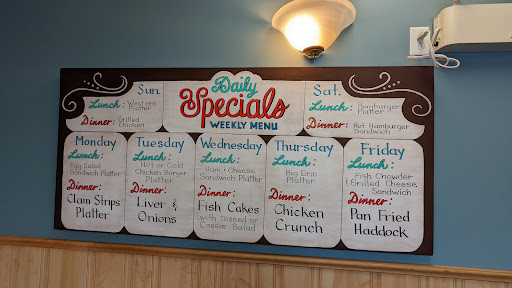 Daily
Specials
WEEKLY MENU
Sun.
Lunch: Western
Platter
Dinner: Grilled
Chicken
Sat.
Lunch: Hamburger
Platter
Dinner: Hot Hamburger
Sandwich
Monday
Lunch:
Egg Salad
Sandwich Platter
Dinner:
Clam Strips
Platter
Tuesday
Lunch:
Hot or Cold
Chicken Burger
Platter
Dinner:
Liver &
Onions
Wednesday
Lunch:
Ham & Cheese
Sandwich Platter
Dinner:
Fish Cakes
with Tossed or
Caesar Salad
Thursday
Lunch:
Big Eric
Platter
Dinner:
Chicken
Crunch
Friday
Lunch:
Fish Chowder
& Grilled Cheese
Sandwich
Dinner:
Pan Fried
Haddock